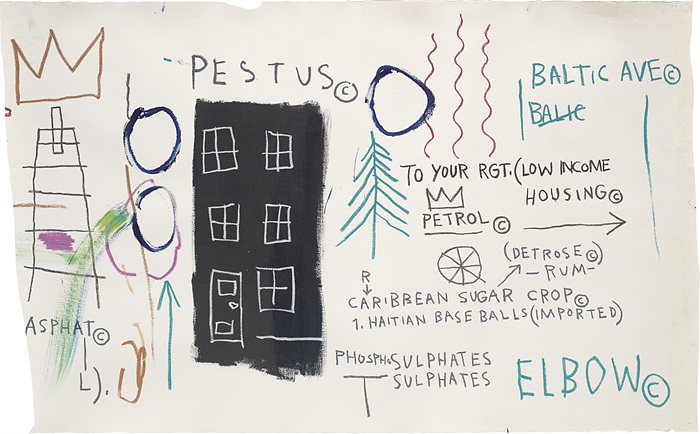 PESTUS©
BALTIC AVE©
BALTIC
TO YOUR RGT.(LOW INCOME
HOUSING©
PETROL ©
(DETROSE©)
-RUM-
R
CARIBBEAN SUGAR CROP©
1. HAITIAN BASE BALLS (IMPORTED)
ASPHAT©
L).
PHOSPHOSULPHATES
SULPHATES
ELBOW©